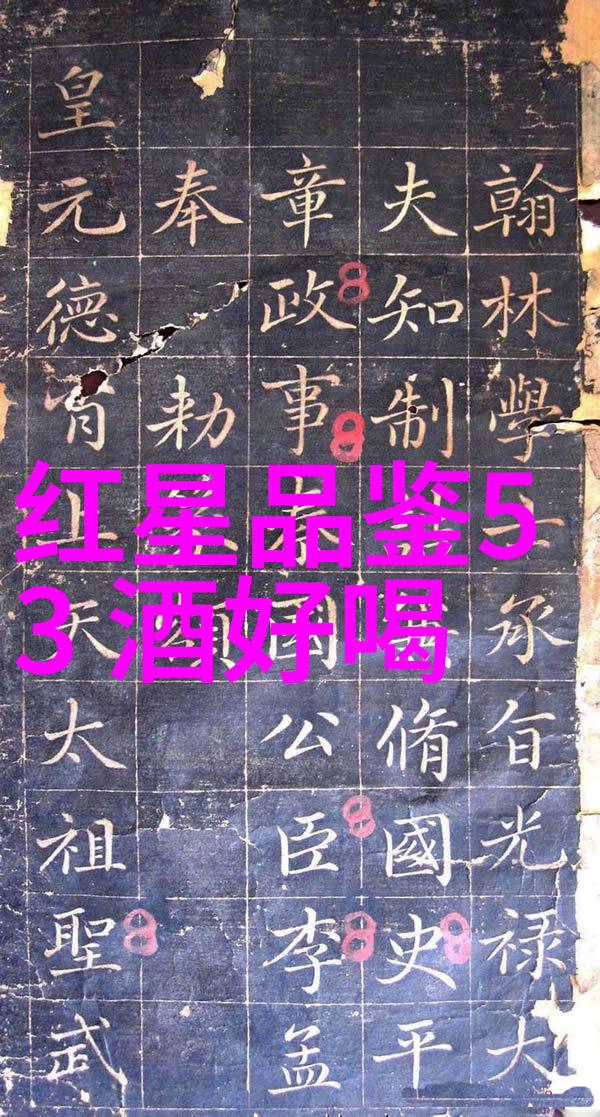 红星品鉴5
3 酒好喝
翰林學士承旨光禄大
夫知制脩國史平
章政事國公臣李孟
奉勅
皇元德天太祖聖武